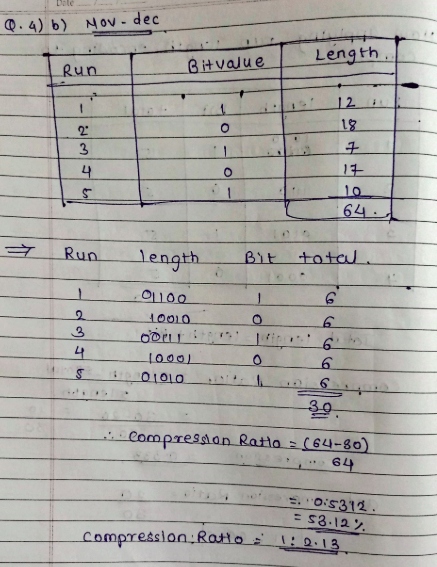 Q. 4) b) Nov - dec
Run Bitvalue Length.
1 1 12
2 0 18
3 1 7
4 0 17
5 1 10
64.
⇒ Run length Bit total.
1 01100 1 6
2 10010 0 6
3 00111 1 6
4 10001 0 6
5 01010 1 6
30.
∴ Compression Ratio = (64-30)
64
= 0.5312.
= 53.12%
Compression Ratio = 1:2.13